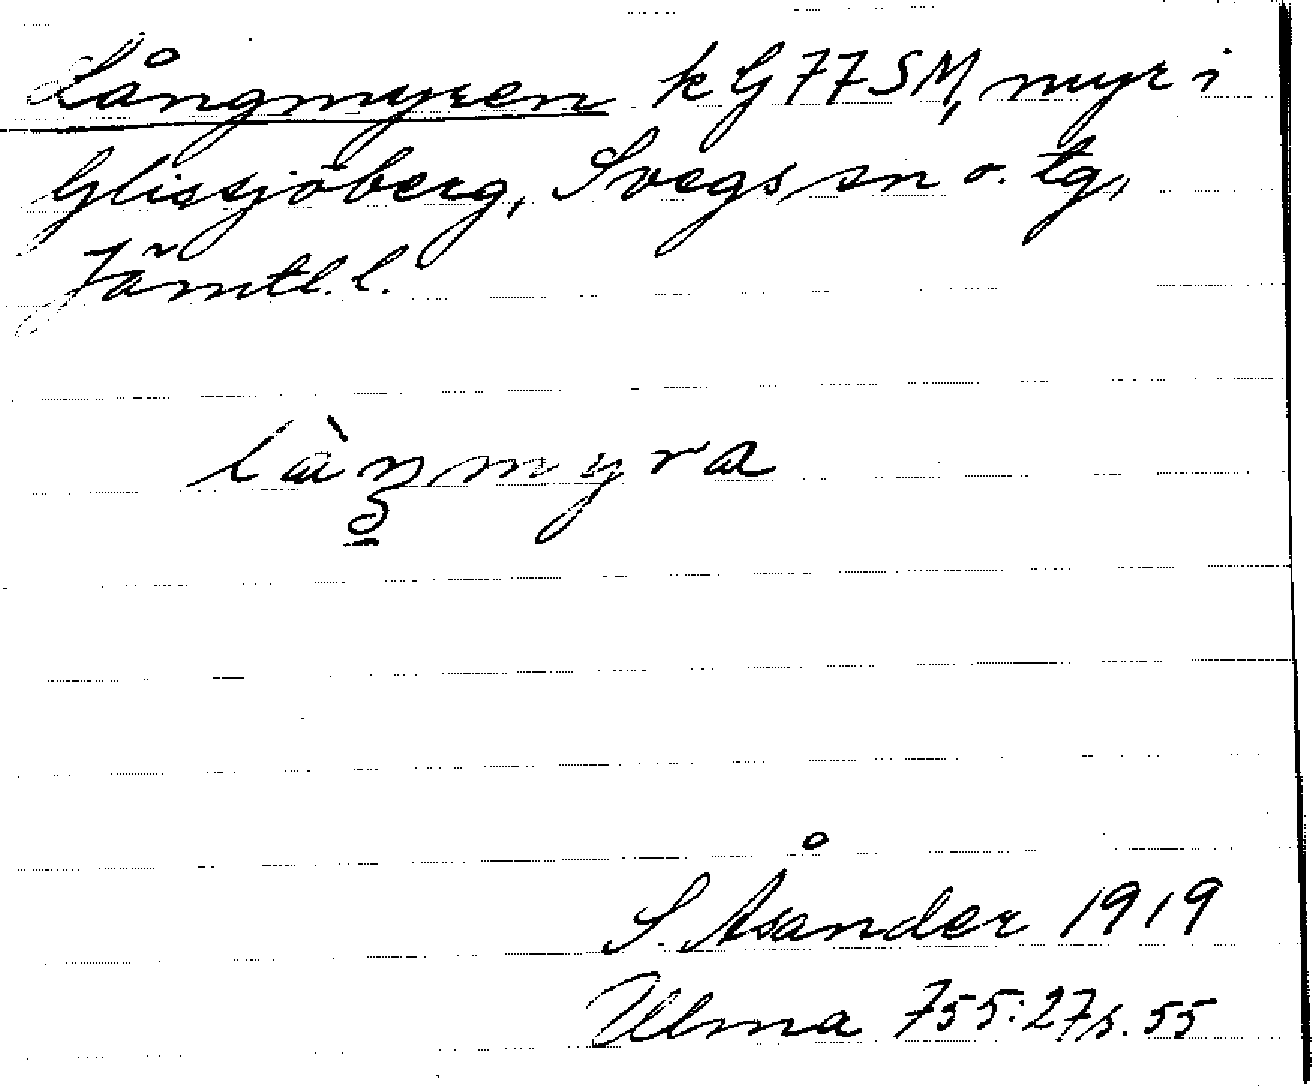 Långmyren k G 77 SM, myr i
Glissjöberg, Svegs sn o. tg,
Jämtl. l.
làŋmyra
S. Åsander 1919
Ulma 755:27 s. 55